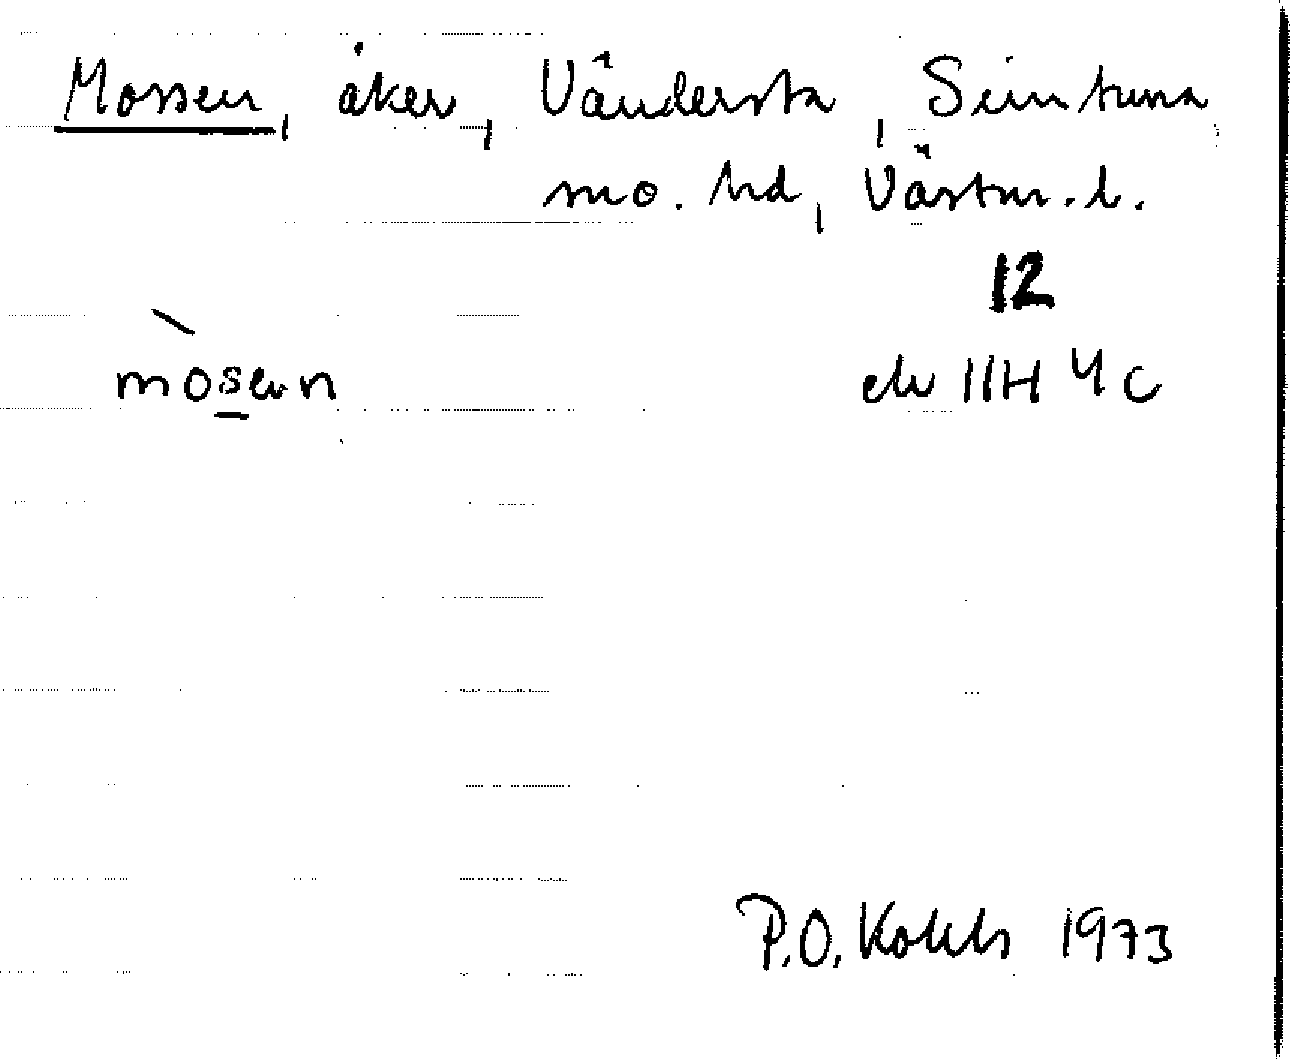 Mossen, åker, Vändersta, Simtuna
sn o. hd, Västm. l.
12
mòsen
ek 11H 4c
1973